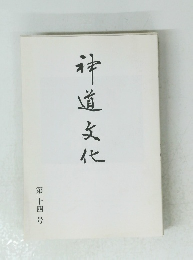 神道文化
第十四号